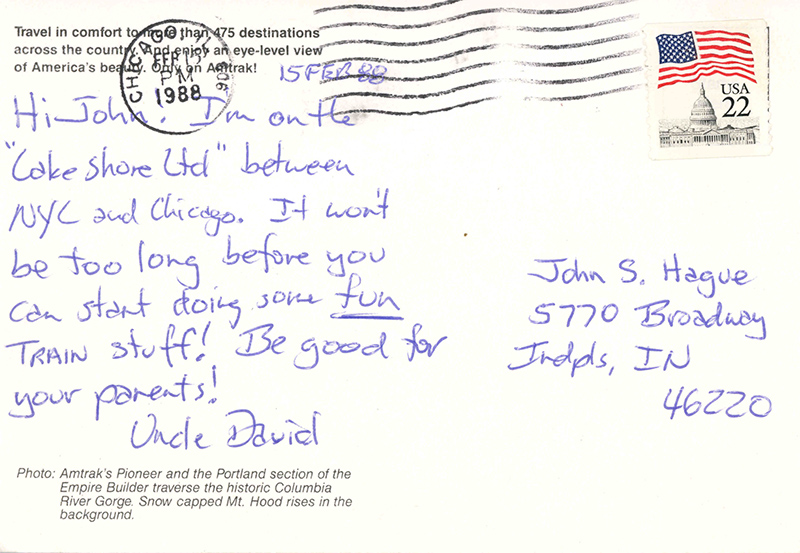 Travel in comfort to more than 475 destinations
across the country. And enjoy an eye-level view
of America's beauty. Only on Amtrak!
CHICAGO, IL 606
FEB 15
PM
1988
15 FEB 88
USA
22
Hi John! I'm on the
"Lake Shore Ltd" between
NYC and Chicago. It won't
be too long before you
can start doing some fun
TRAIN stuff! Be good for
your parents!
Uncle David
John S. Hague
5770 Broadway
Indpls, IN
46220
Photo: Amtrak's Pioneer and the Portland section of the
Empire Builder traverse the historic Columbia
River Gorge. Snow capped Mt. Hood rises in the
background.